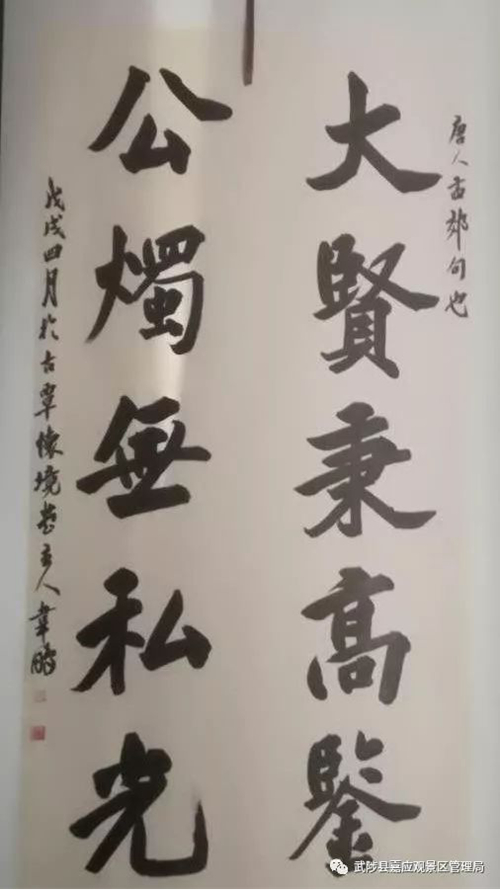 唐人孟郊句也
大賢秉高鑒
公燭無私光
戊戌四月於古覃懷境堂主人韋鵬
武陟县嘉应观景区管理局